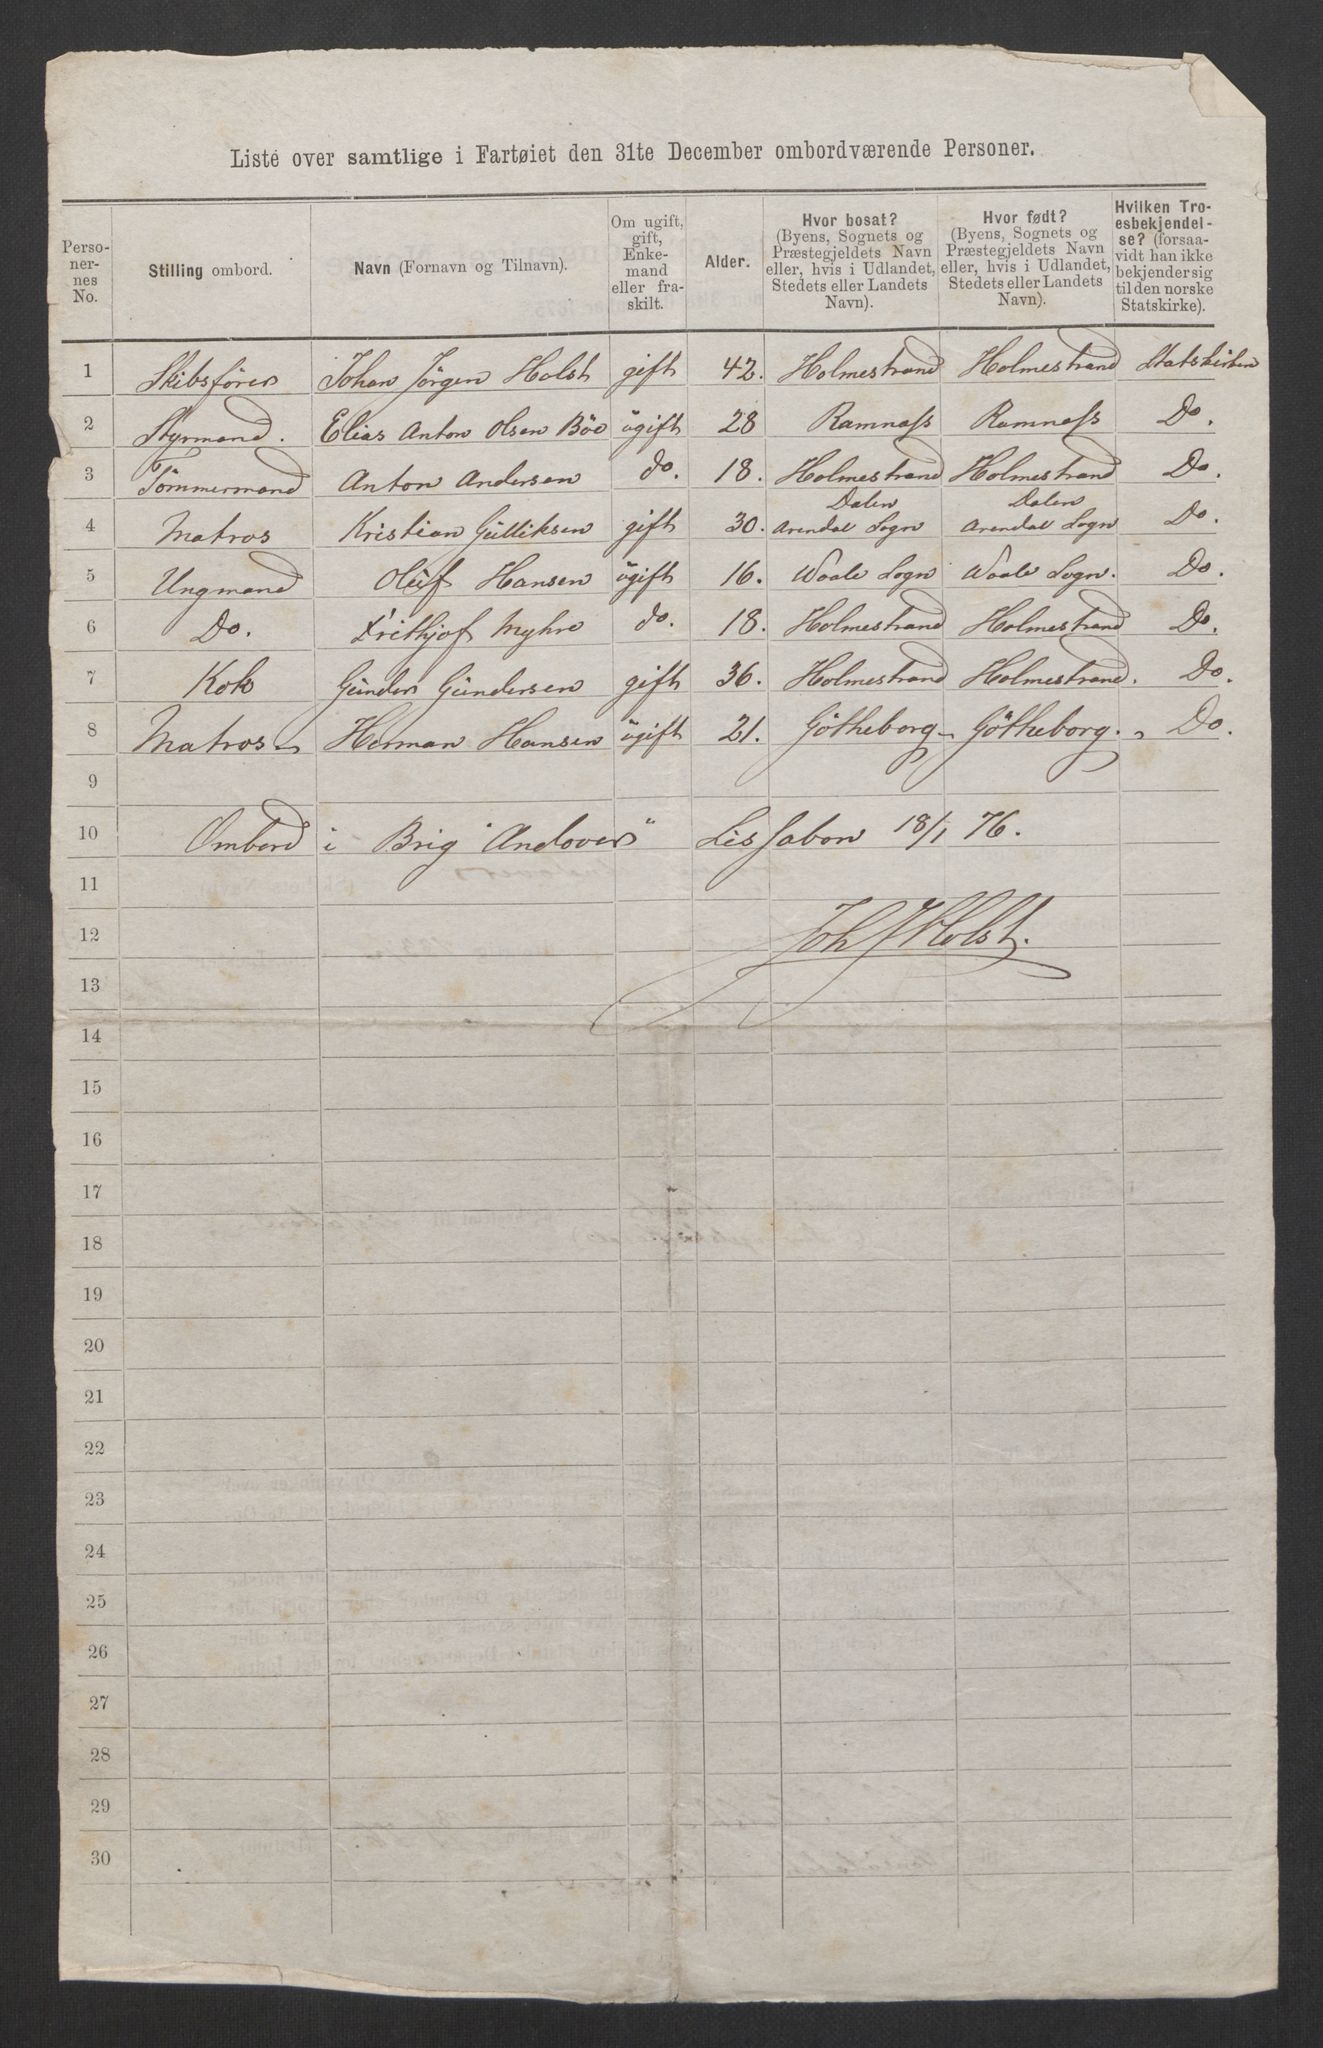 Liste over samtlige i Fartøiet den 31te December ombordværende Personer.
Personernes No. | Stilling ombord. | Navn (Fornavn og Tilnavn). | Om ugift, gift, Enkemand eller fraskilt. | Alder. | Hvor bosat? (Byens, Sognets og Præstegjeldets Navn eller, hvis i Udlandet, Stedets eller Landets Navn). | Hvor født? (Byens, Sognets og Præstegjeldets Navn eller, hvis i Udlandet, Stedets eller Landets Navn). | Hvilken Troesbekjendelse? (forsaavidt han ikke bekjender sig til den norske Statskirke).
1 Skibsförer Johan Jörgen Holst gift 42. Holmestrand Holmestrand Statskirken
2 Styrmand. Elias Anton Olsen Böe ugift 28 Ramnæss Ramnæss Do.
3 Tömmermand Anton Andersen do. 18. Holmestrand Holmestrand Do.
4 Matros Kristian Gulliksen gift 30. Dalen Arendal Sogn Dalen Arendal Sogn Do.
5 Ungmand Oluf Hansen ugift 16. Waale Sogn Waale Sogn. Do.
6 Do. Frithjof Myhre do. 18. Holmestrand Holmestrand Do.
7 Kok Gunder Gundersen gift 36. Holmestrand Holmestrand. Do.
8 Matros Herman Hansen ugift 21. Götheborg Götheborg. Do.
9
10 Ombord i Brig "Andover" Lissabon 18/1 76.
11
12 Joh J Holst.
13
14
15
16
17
18
19
20
21
22
23
24
25
26
27
28
29
30